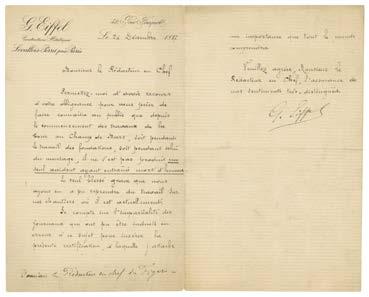 G. Eiffel
Constructions Métalliques
Levallois-Perret près Paris
Le 24 Décembre 188
Monsieur le Rédacteur en Chef
Permettez-moi d'avoir recours
à votre obligeance pour vous prier de
faire connaître au public que depuis
le commencement des travaux de la
tour au Champ de Mars, soit pendant
le travail des fondations, soit pendant celui
du montage, il ne s'est pas produit un
seul accident ayant entraîné mort d'homme.
Le seul blessé grave que nous
ayons eu a pu reprendre du travail sur
nos chantiers où il est actuellement.
Je compte sur l'impartialité des
journaux qui ont pu être induits en
erreur à ce sujet pour insérer la
présente rectification, à laquelle j'attache
Monsieur le Rédacteur en chef du Figaro
une importance que tout le monde
comprendra.
Veuillez agréer, Monsieur le
Rédacteur en Chef, l'assurance de
mes sentiments très distingués.
G. Eiffel